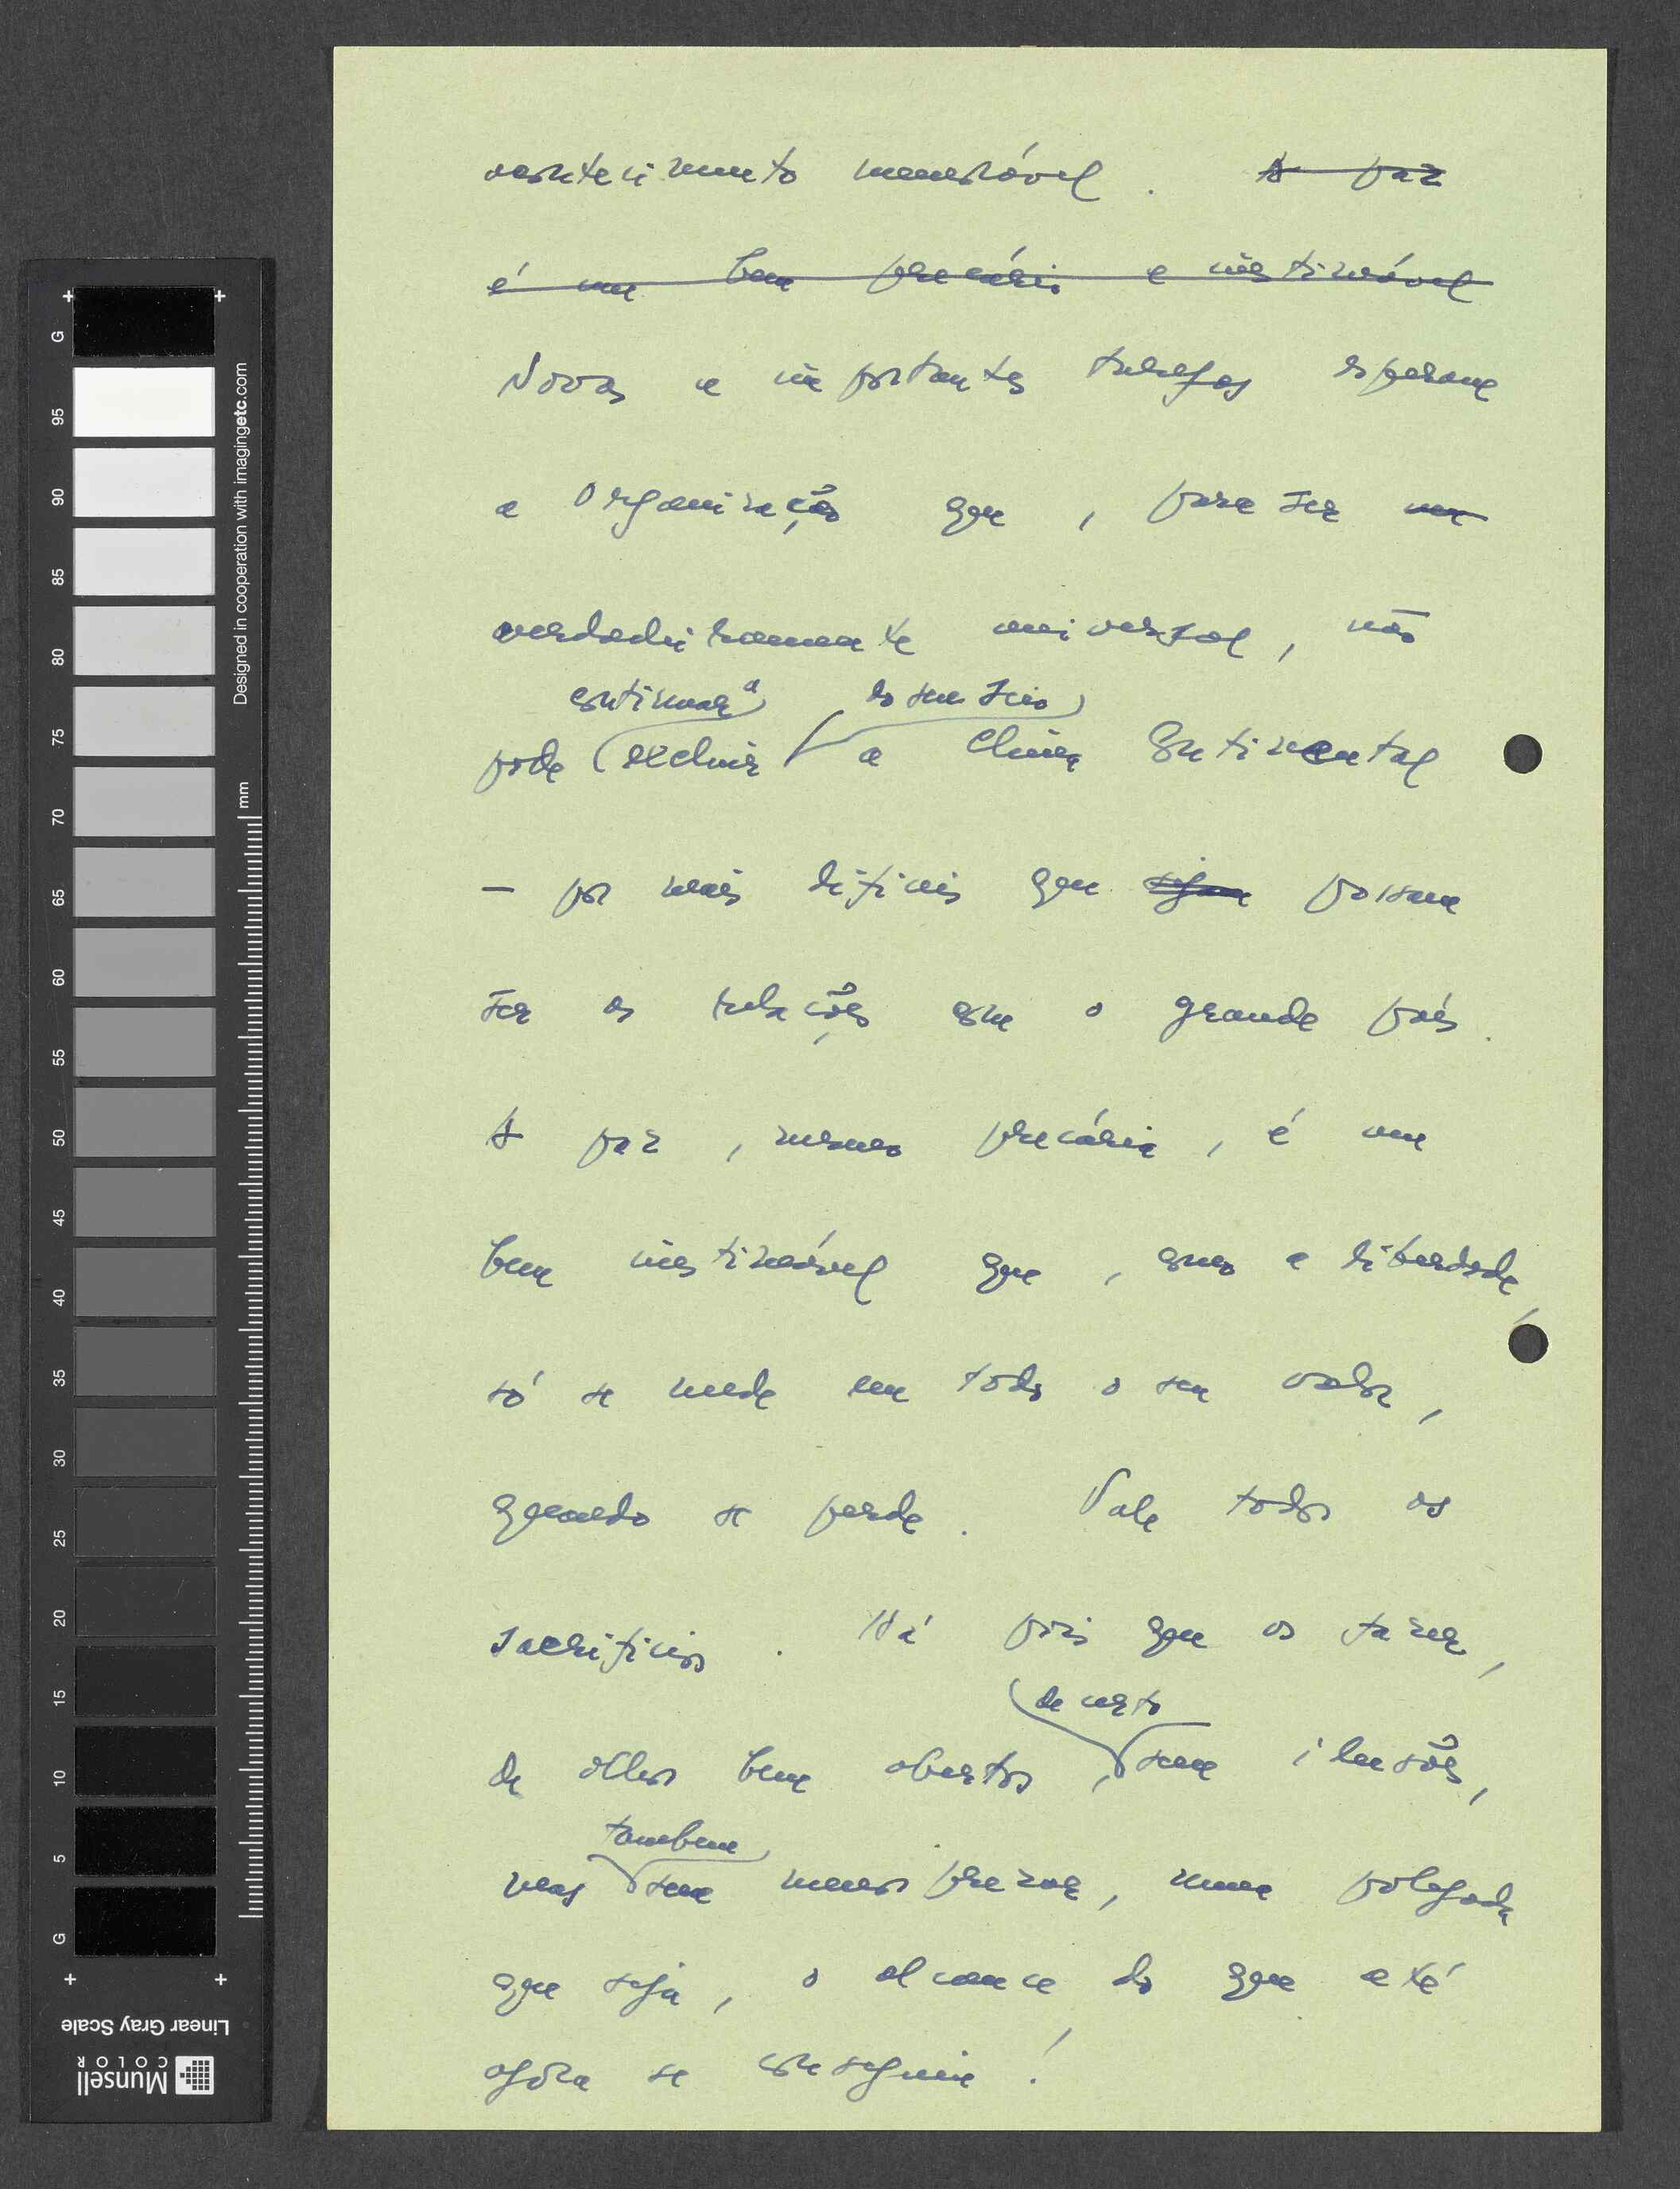 acontecimento memorável. A paz
é um bem precário e inestimável
Novas e importantes tarefas esperam
a Organização que, para ser
verdadeiramente universal, não
continuar a do seu seio
pode excluir a China Continental
— por mais difíceis que sejam possam
ser as relações com o grande país.
A paz, mesmo precária, é um
bem inestimável que, como a liberdade,
só se mede em todo o seu valor,
quando se perde. Vale todos os
sacrifícios. Há pois que os fazer,
de certo
de olhos bem abertos, sem ilusões,
tambem
mas sem menosprezar, numa polegada
que seja, o alcance do que até
agóra se conseguiu!
G
95
90
85
80
75
70
65
60
55
50
45
40
35
30
25
20
15
10
5
G
Designed in cooperation with imagingetc.com
mm
Linear Gray Scale
Munsell
COLOR